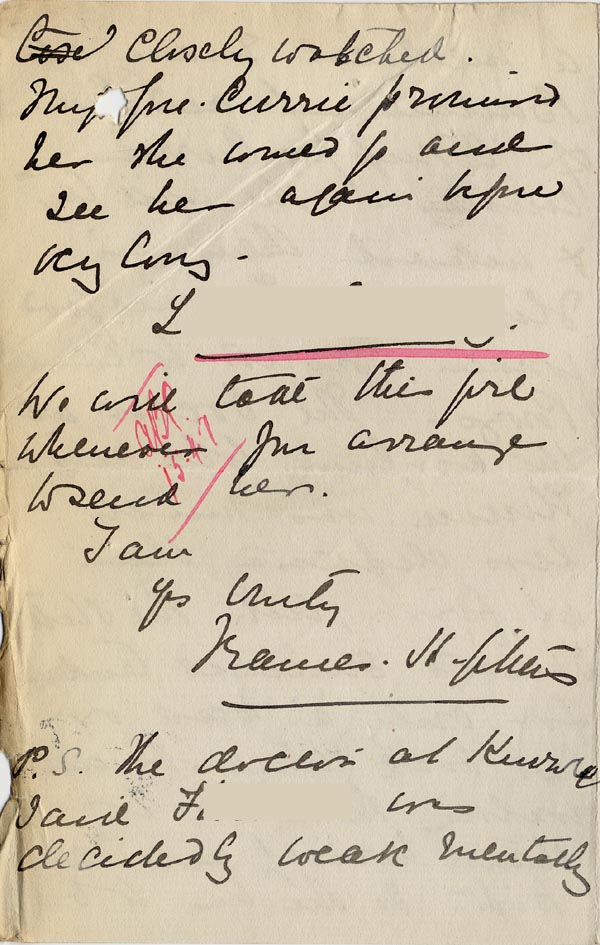 closely watched.
Currie promised
her she would go and
see her again before
very long.
L
We will take this girl
whenever you arrange
to send her.
15.4.7
I am
Yrs truly
Frances.
P.S. The doctor at
said F. was
decidedly weak mentally